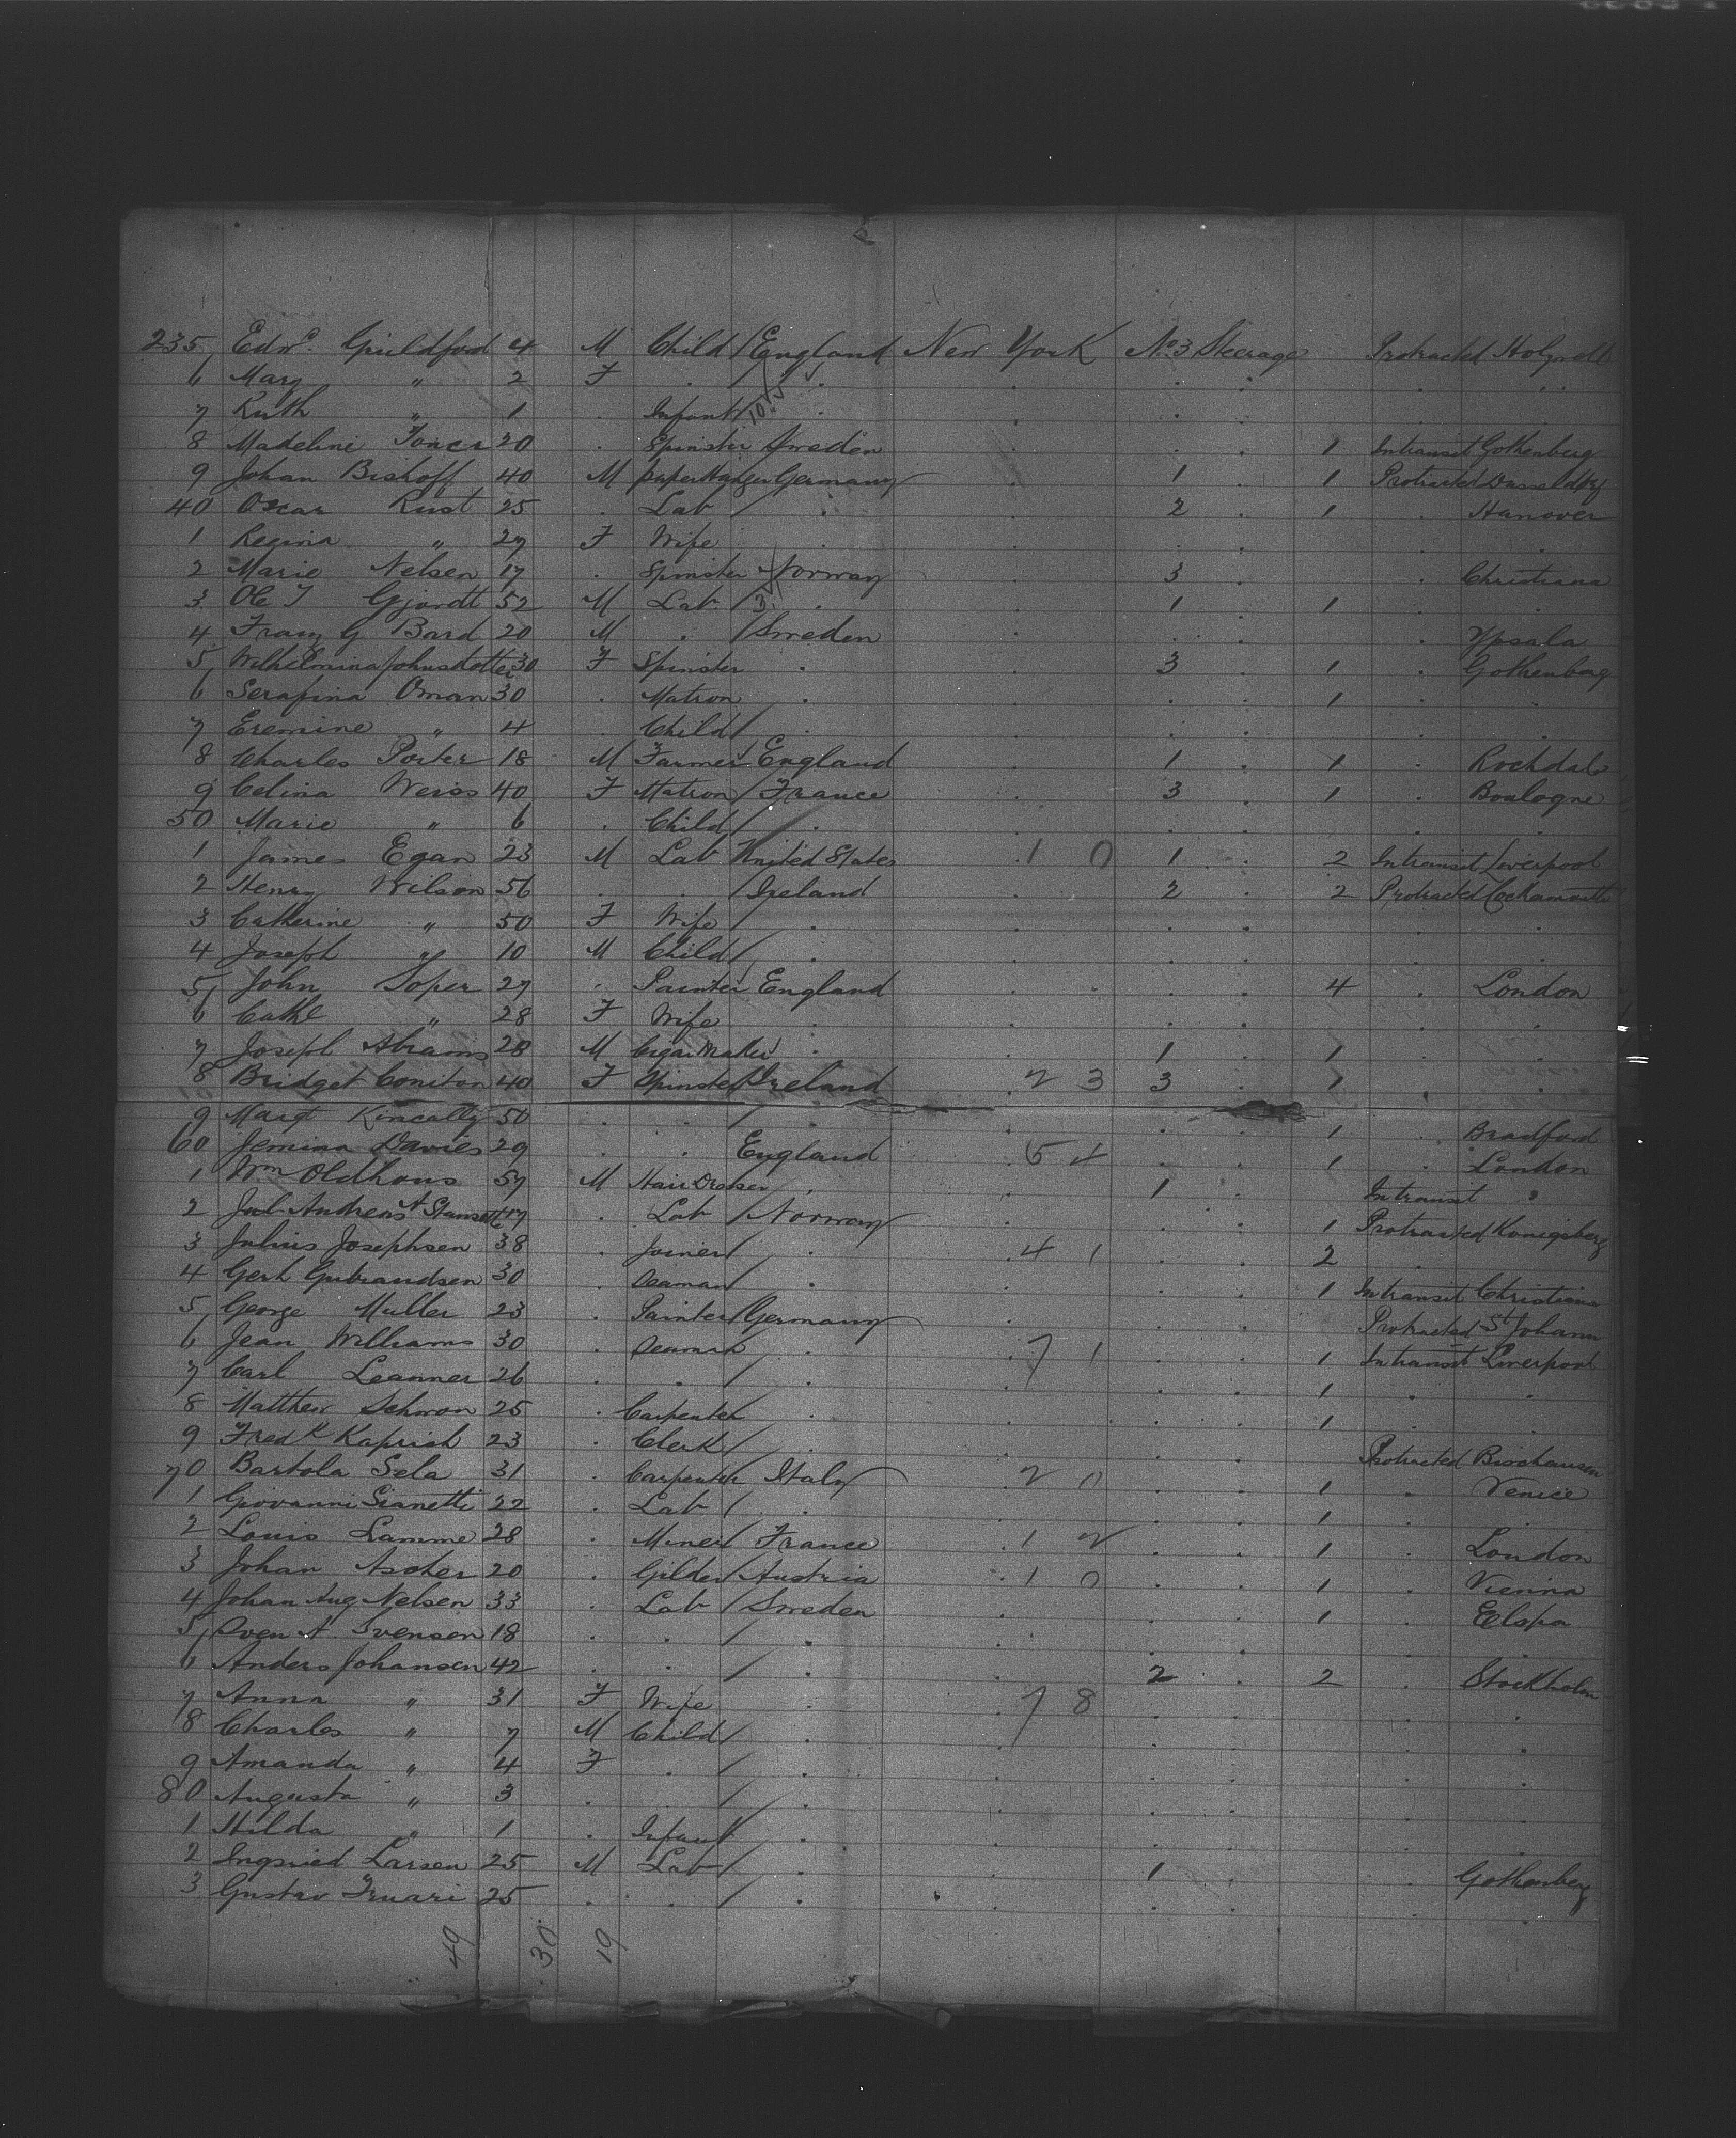 235 Edwd. Guildford 4 M Child / England New York No. 3 Steerage Protracted Holywell
6 Mary " 2 F . .
7 Ruth " 1 . Infant / .
8 Madeline 20 . Spinster Sweden . . 1 Intransit Gothenberg
9 Johan Bishoff 40 M paperHanger Germany . 1 . 1 Protracted Dusseldorf
40 Oscar Rust 25 . Lab / . . 2 . 1 . Hanover
1 Regina " 27 F Wife .
2 Marie Nelsen 17 . Spinster Norway . 3 . . Christiana
3 Ole J Gjordt 52 M Lab / . . 1 1 . .
4 Franz G Bard 20 M . / Sweden . . . . Ypsala
5 Wilhelmina Johnsdotter 30 F Spinster . . 3 . 1 . Gothenborg
6 Serafina Oman 30 . Matron . . . . 1 . .
7 Eremine " 4 . Child / .
8 Charles Porter 18 M Farmer England . 1 . 1 . Rochdale
9 Celina Weiss 40 F Matron / France . 3 . 1 . Boulogne
50 Marie " 6 . Child / .
1 James Egan 23 M Lab United States . 1 0 1 . 2 Intransit Liverpool
2 Henry Wilson 56 . . / Ireland . 2 . 2 Protracted Cockamouth
3 Catherine " 50 F Wife / .
4 Joseph " 10 M Child / .
5 John Soper 27 . Painter England . . . 4 . London
6 Cathe " 28 F Wife .
7 Joseph Abrams 28 M Cigar Maker . . 1 . 1 . .
8 Bridget Coniton 40 F Spinster / Ireland 2 3 3 . 1 . .
9 Margt Kincally 50 . . / . . . . 1 . Bradford
60 Jemina Davies 29 . . England 5 4 . . 1 . London
1 Wm Oldhous 57 M Hair Dresser . . 1 . Intransit "
2 Jul Andreas A 47 . Lab / Norway . . . 1 Protracted Konigsberg
3 Julius Josephsen 38 . Joiner / . . 4 1 . . 2
4 Gerh Gubrandsen 30 . Seaman / . . . . 1 Intransit Christiana
5 George Muller 23 . Painter / Germany . . . Protracted St Johann
6 Jean Williams 30 . Seaman . . 7 1 . . 1 Intransit Liverpool
7 Carl Leanner 26 . . / . . . . 1 . .
8 Matthew Schwon 25 . Carpenter . . . . 1 . .
9 Fredk Kaprish 23 . Clerk / . . . . Protracted Bischausen
70 Bartola Sela 31 . Carpenter Italy 2 0 . . 1 . Venice
1 Giovanni Sianetti 22 . Lab / . . . . 1 . .
2 Louis Lamme 28 . Miner / France . 1 2 . . 1 . London
3 Johan Ascher 20 . Gilder / Austria . 1 0 . . 1 . Vienna
4 Johan Aug Nelsen 33 . Lab / Sweden . . . 1 . Elspa
5 Sven A. Svensen 18 . . / .
6 Anders Johansen 42 . . / . . 2 . 2 . Stockholm
7 Anna " 31 F Wife . . 7 8
8 Charles " 7 M Child / .
9 Amanda " 4 F . / .
80 Augusta " 3 . . / .
1 Hilda " 1 . Infant / .
2 Ingfried Larsen 25 M Lab / . . 1 . . Gothenberg
3 Gustav Fruari 25 . . / .
49 30 19